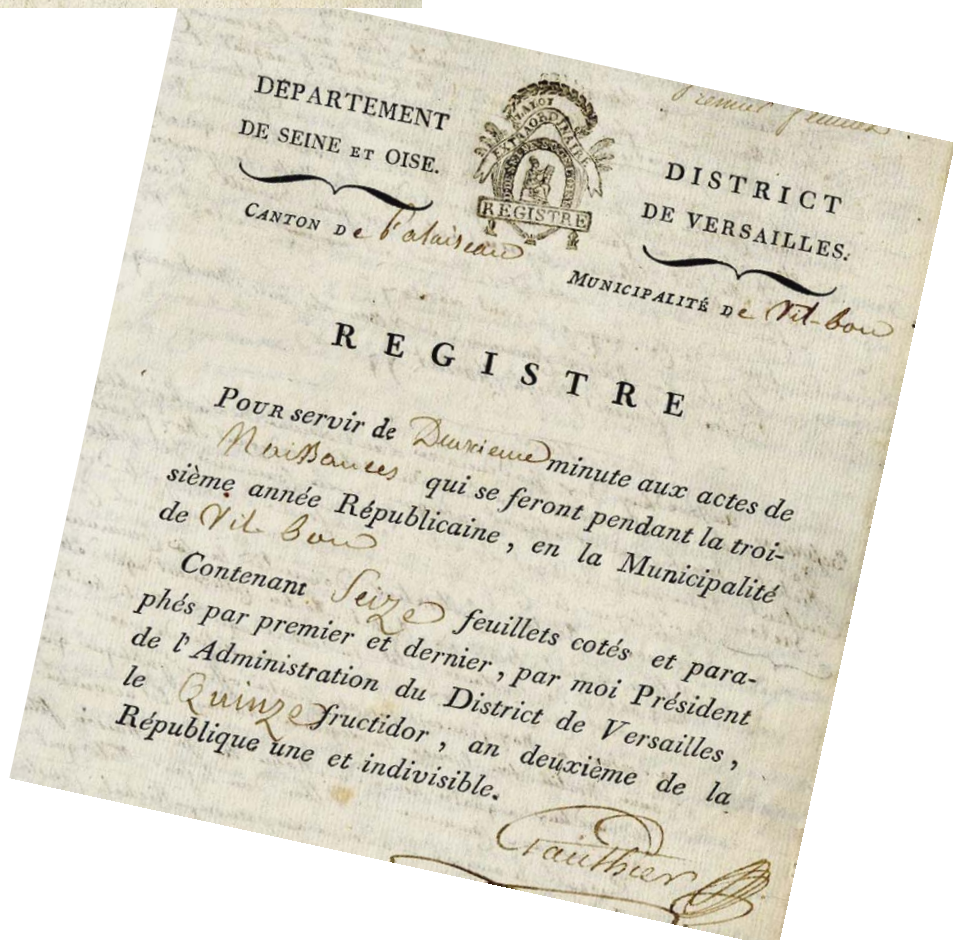 Premier feuillet
DÉPARTEMENT
DE SEINE ET OISE.
CANTON De Palaiseau
LAYOT
EXTRAORDINAIRE
REGISTRE
DISTRICT
DE VERSAILLES.
MUNICIPALITÉ De Vil-bon
REGISTRE
POUR servir de Deuxieme minute aux actes de
Naissances qui se feront pendant la troi-
sième année Républicaine, en la Municipalité
de Vil-bon
Contenant Seize feuillets cotés et para-
phés par premier et dernier, par moi Président
de l'Administration du District de Versailles,
le Quinze fructidor, an deuxième de la
République une et indivisible.
Gauthier